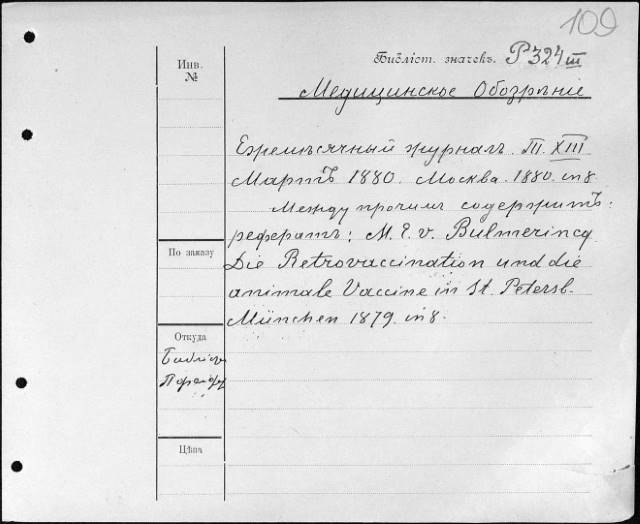 109
Инв.
№
Библіот. значекъ. P324III
Медицинское Обозрѣніе
Ежемѣсячный журналъ. Т. XIII
Мартъ 1880. Москва. 1880. in 8.
Между прочимъ содержитъ:
рефератъ: M. E. v. Bulmerincq
Die Retrovaccination und die
animale Vaccine in St. Petersb.
München 1879. in 8.
По заказу
Откуда
Цѣна